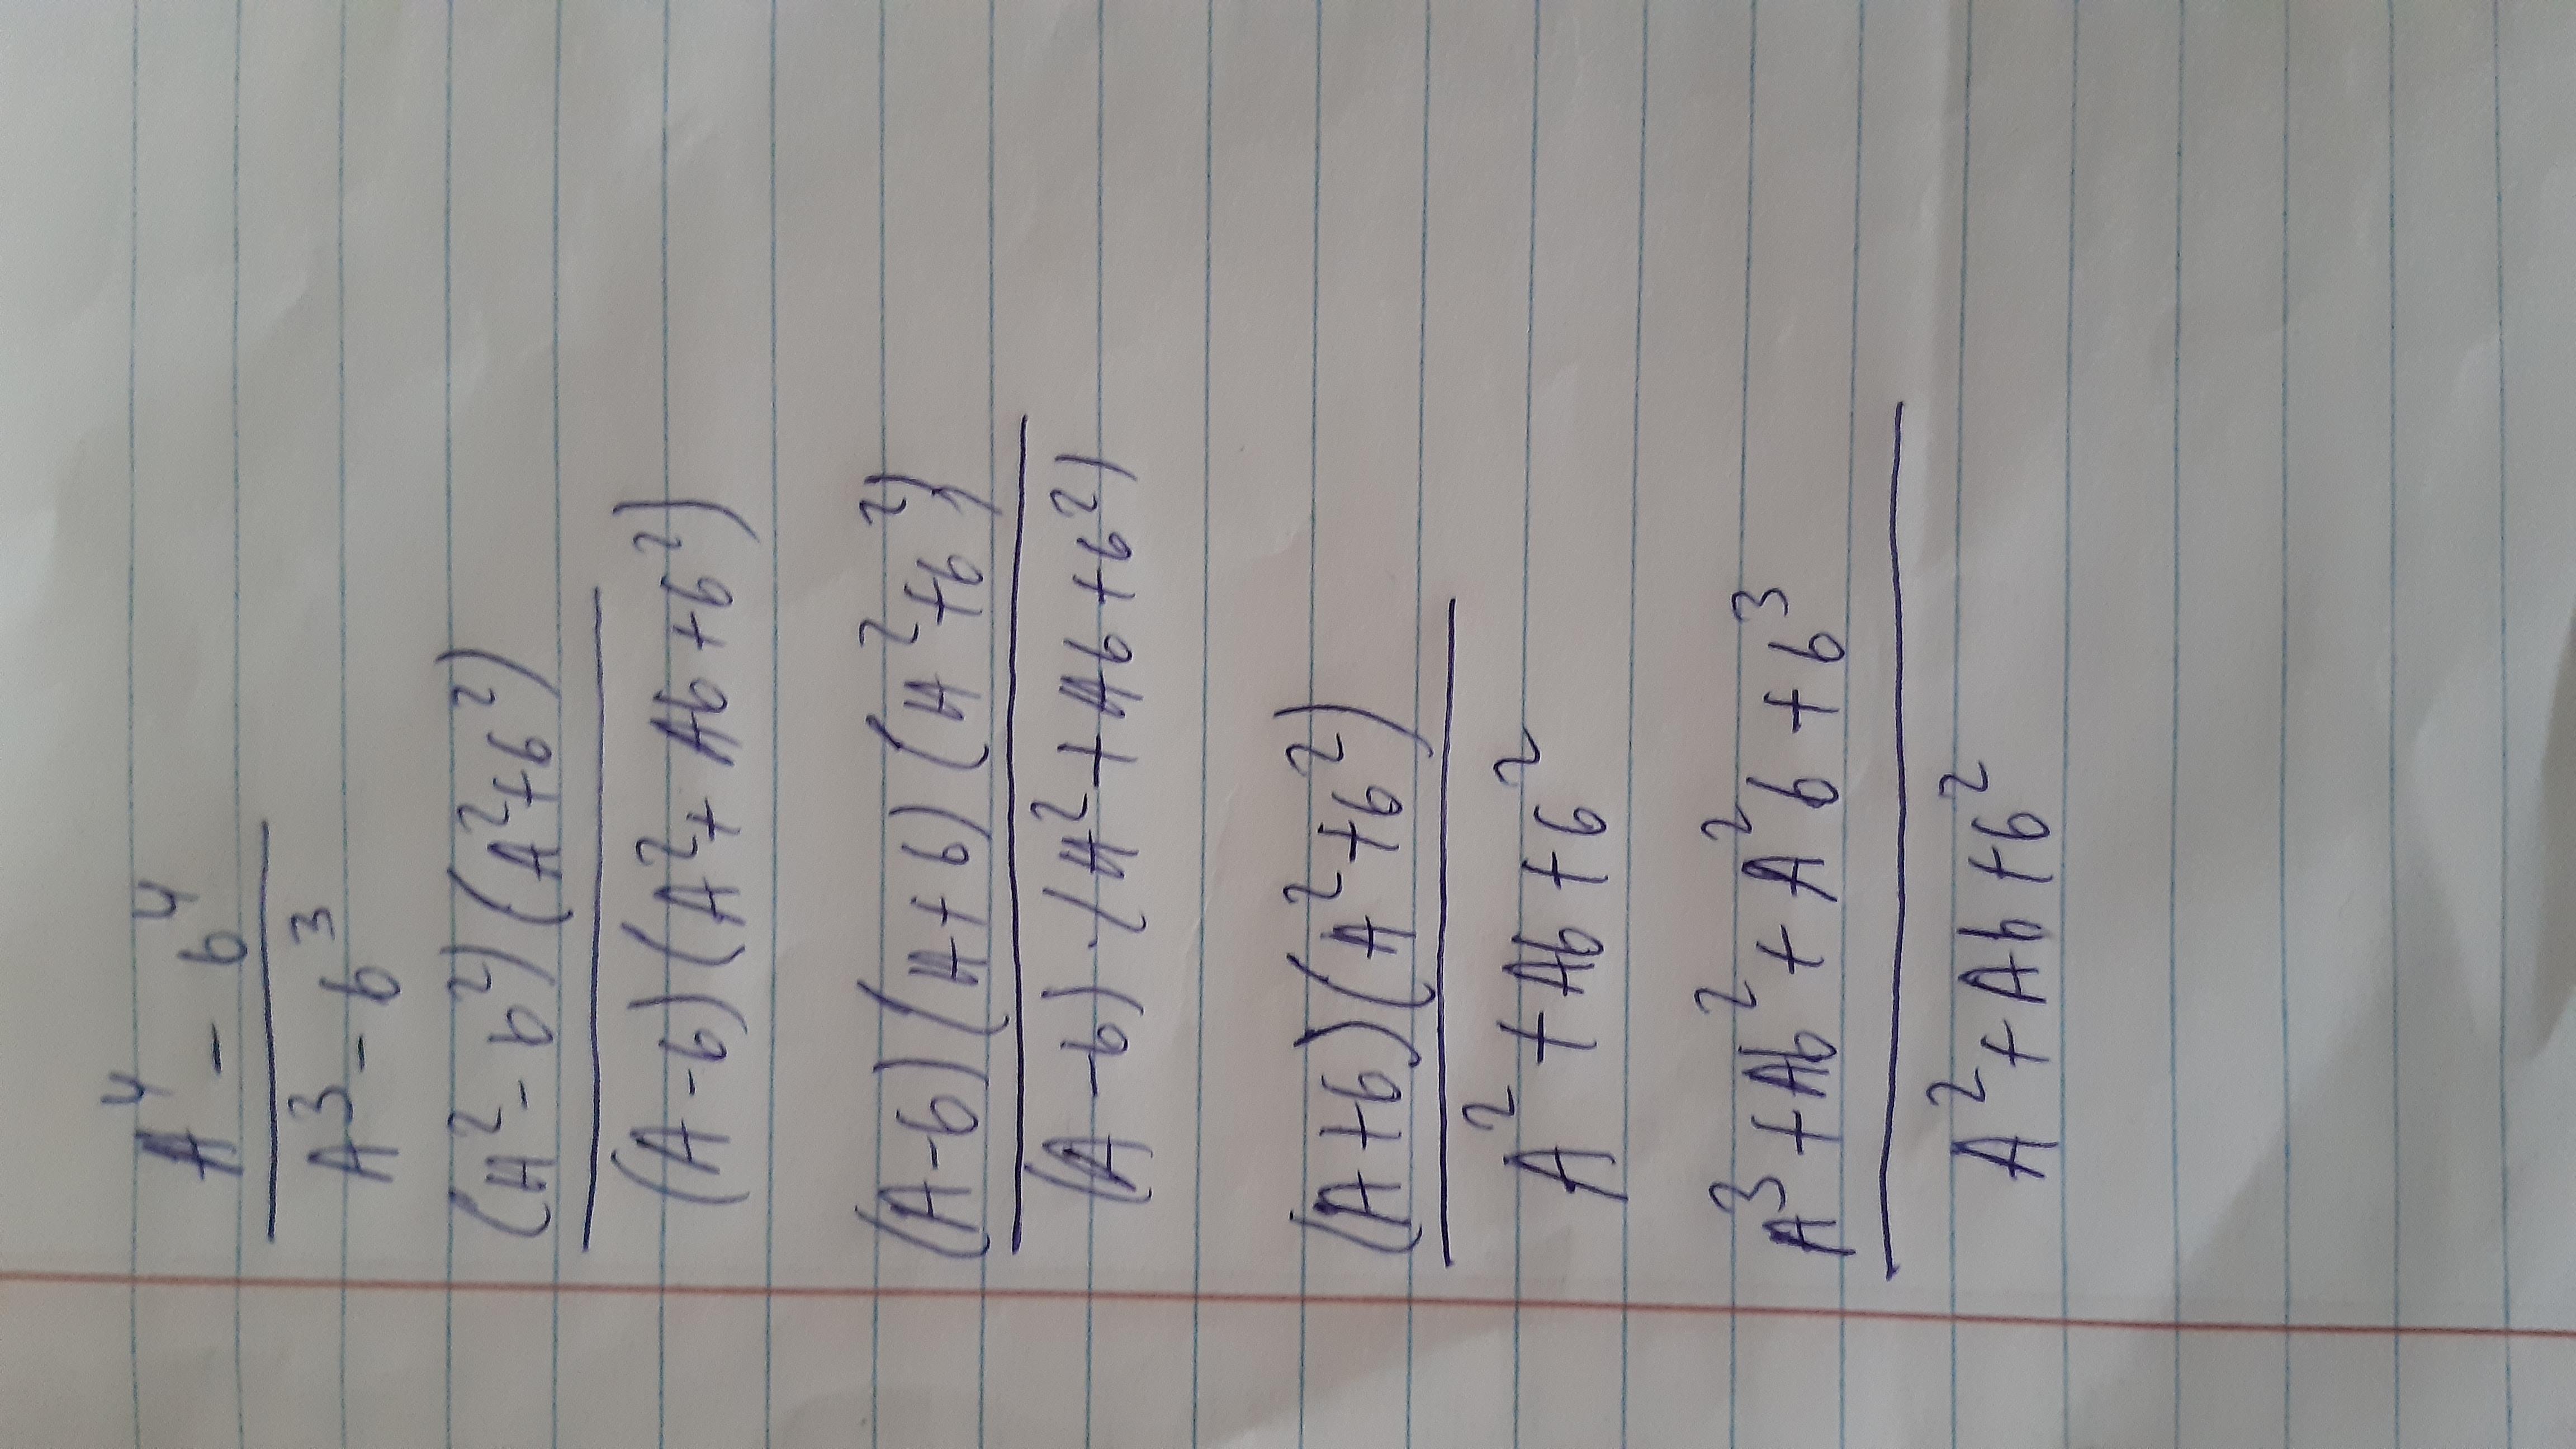 A⁴ - b⁴
A³ - b³
(A² - b²)(A²+b²)
(A-b)(A²+ Ab+b²)
(A-b)(A+b)(A²+b²)
(A-b)·(A²+Ab+b²)
(A+b)(A²+b²)
A² + Ab + b²
A³+Ab²+A²b+b³
A²+Ab+b²